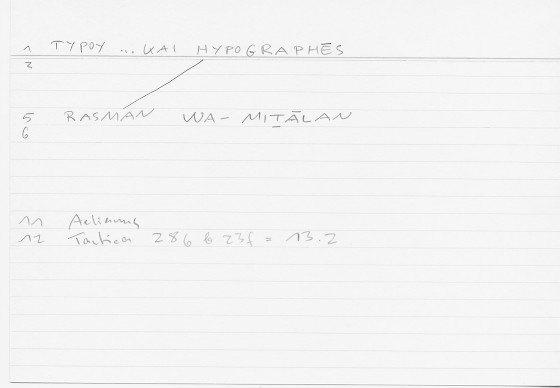 1 TYPOY ... KAI HYPOGRAPHĒS
2
5 RASMAN WA- MIṮĀLAN
6
11 Aelianus
12 Tactica 286 B 23f = 13.2